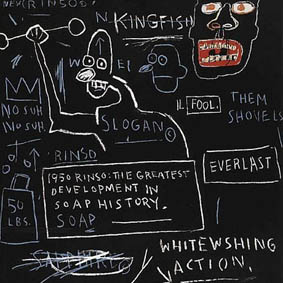 RINSO®
N. KINGFISH
W EI
NO SUH,
NO SUH.
SLOGAN©
II. FOOL.
THEM
SHOVELS
RINSO
EVERLAST
1950 RINSO: THE GREATEST
DEVELOPMENT IN
SOAP HISTORY.
SOAP
50
LBS.
SAPPHIRE
WHITEWSHING
ACTION.